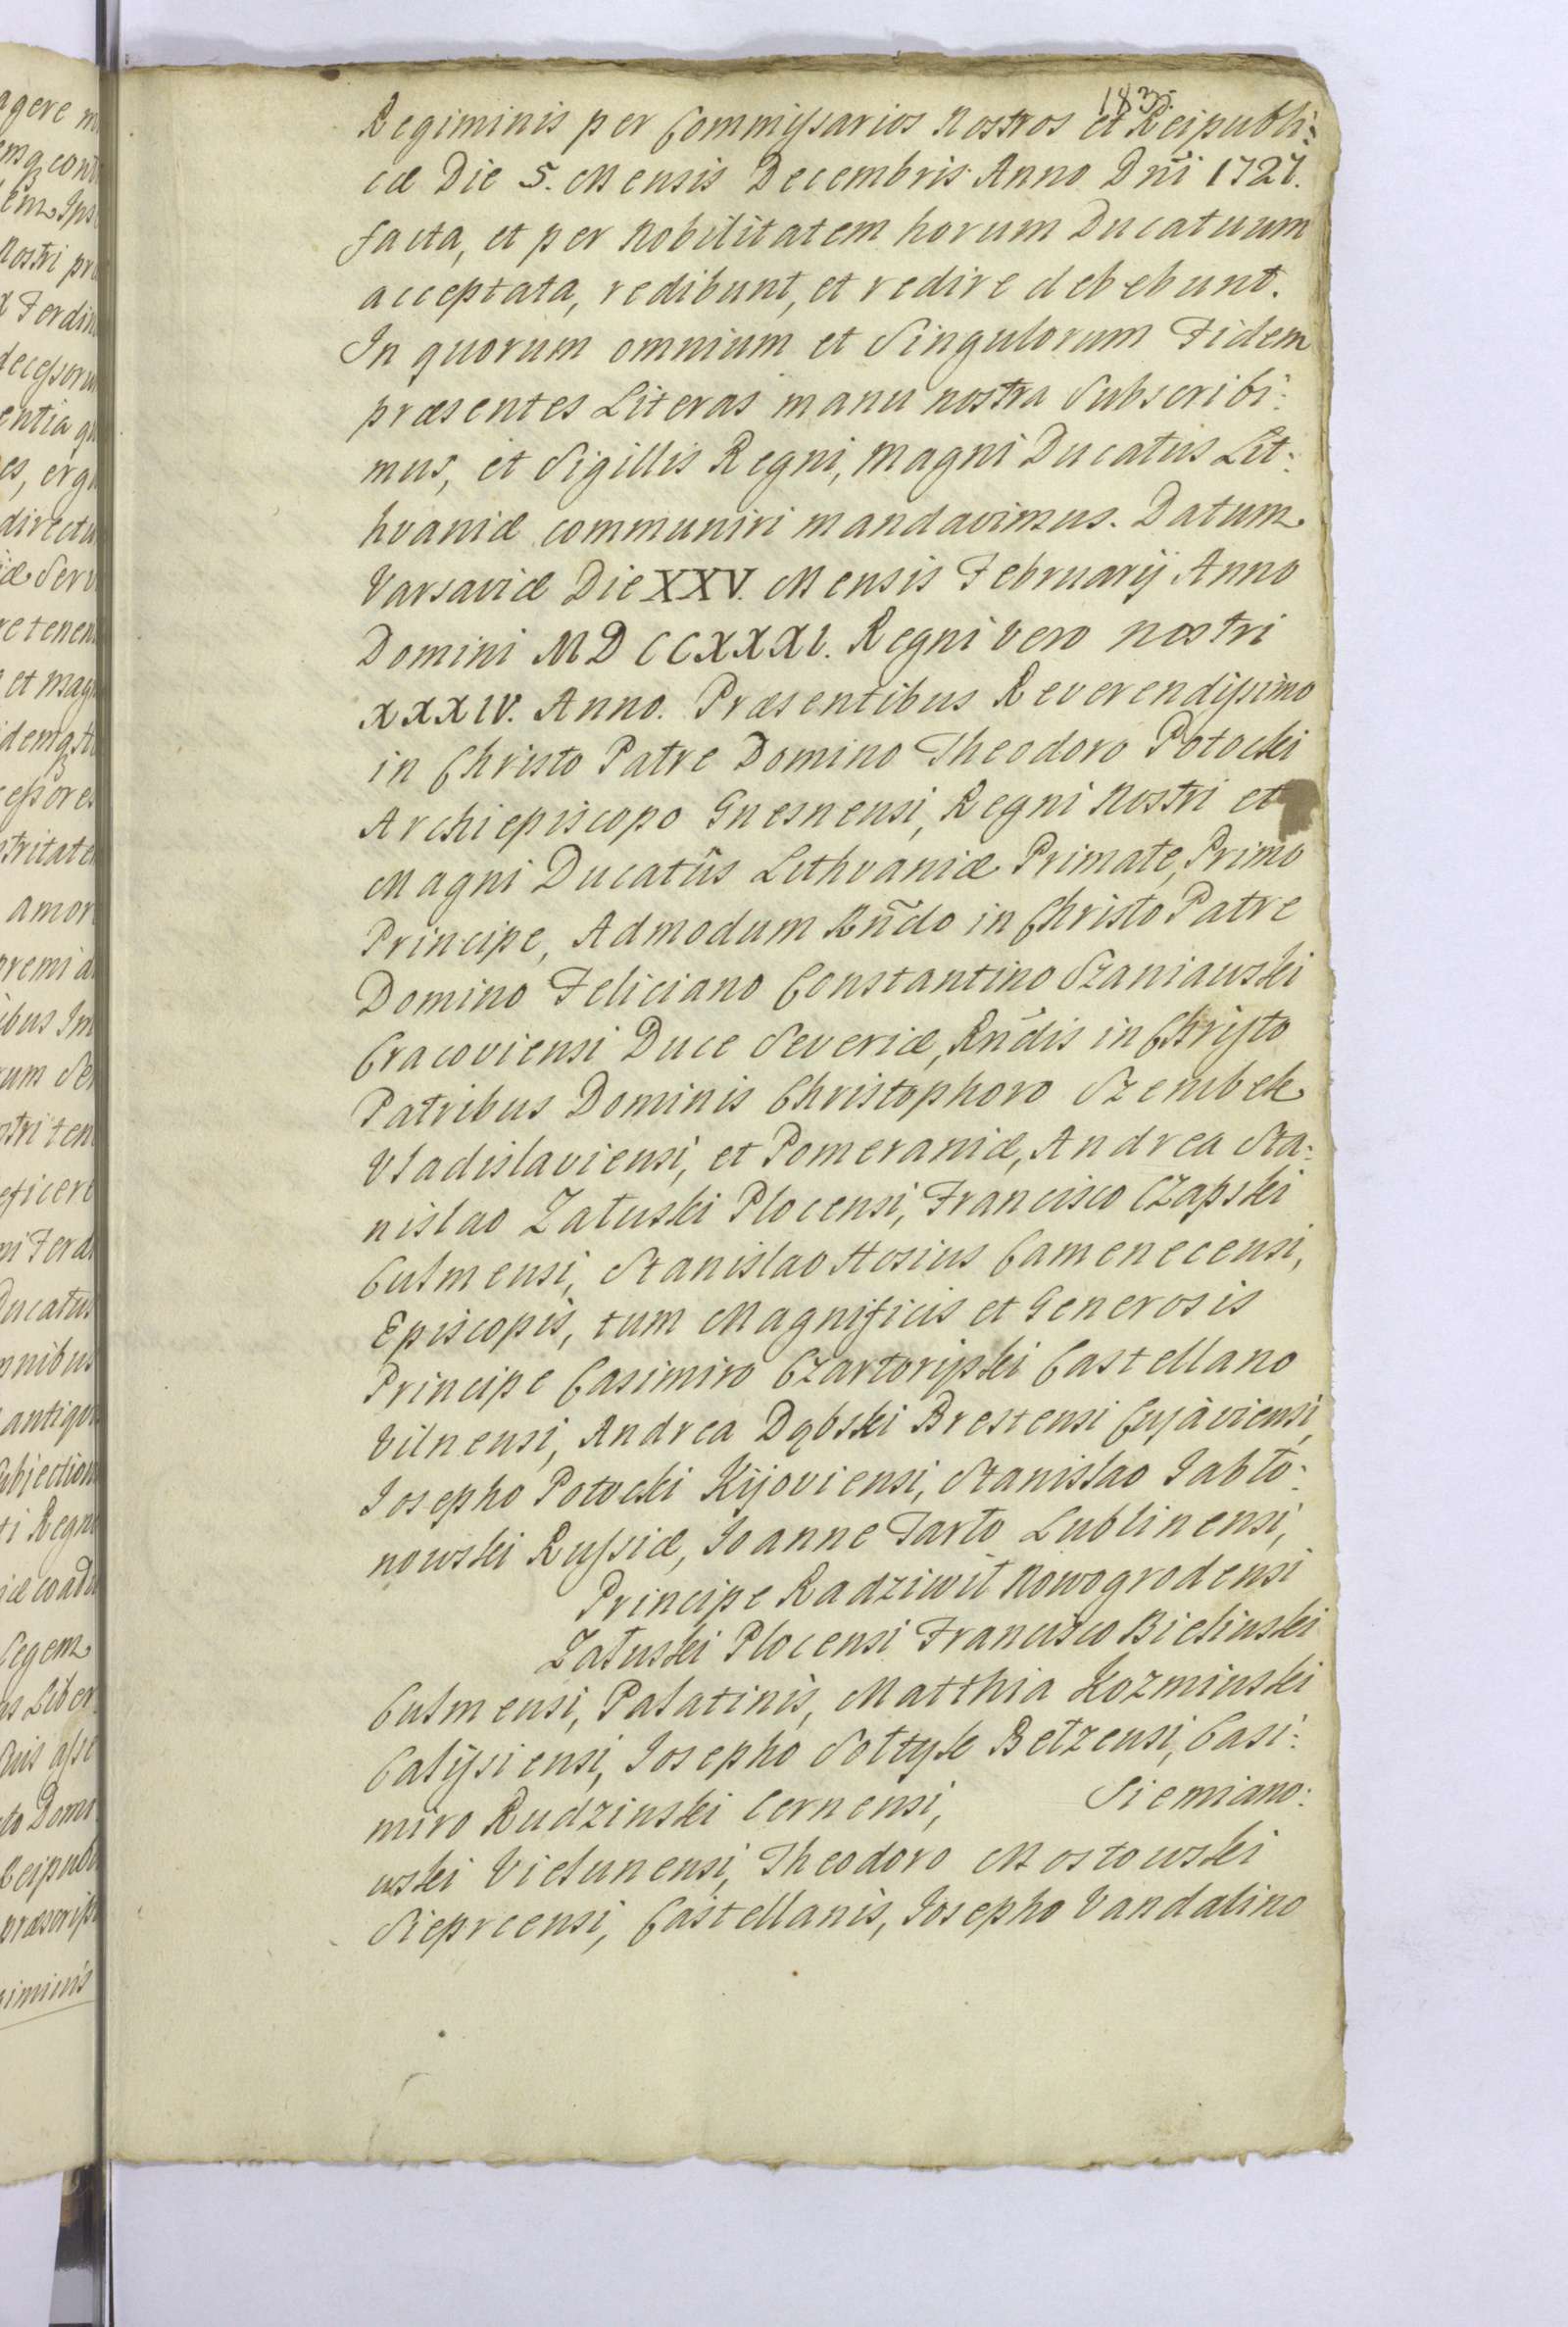 183.
Regiminis per Commissarios Nostros et Reipubli:
cæ Die 5. Mensis Decembris Anno Dñi 1727.
facta, et per Nobilitatem horum Ducatuum
acceptata, redibunt, et redire debebunt.
In quorum omnium et Singulorum Fidem
præsentes Literas manu nostra Subscribi:
mus, et Sigillis Regni, Magni Ducatus Lit:
hvaniæ communiri mandavimus. Datum
Varsaviæ Die XXV. Mensis Februarÿ Anno
Domini MDCCXXXI. Regni vero nostri
XXXIV. Anno. Præsentibus Reverendissimo
in Christo Patre Domino Theodoro Potocki
Archiepiscopo Gnesnensi, Regni Nostri et
Magni Ducatûs Lithvaniæ Primate, Primo
Principe, Admodum Rñdo in Christo Patre
Domino Feliciano Constantino Szaniawski
Cracoviensi Duce Severiæ, Rñdis in Christo
Patribus Dominis Christophoro Szembek
Vladislaviensi, et Pomeraniæ, Andrea Sta:
nislao Załuski Plocensi, Francisco Czapski
Culmensi, Stanislao Hosius Camenecensi,
Episcopis, tum Magnificis et Generosis
Principe Casimiro Czartoryski Castellano
Vilnensi, Andrea Dąbski Brestensi Cujaviensi,
Josepho Potocki Kijoviensi, Stanislao Jabło:
nowski Russiæ, Joanne Tarło Lublinensi,
Principe Radziwił Nowogrodensi
Załuski Plocensi Francisco Bielinski
Culmensi, Palatinis, Matthia Kozminski
Calissiensi, Josepho Sołtyk Bełzensi, Casi:
miro Rudzinski Cernensi, Siemiano:
wski Vielunensi, Theodoro Mostowski
Sieprcensi, Castellanis, Josepho Vandalino